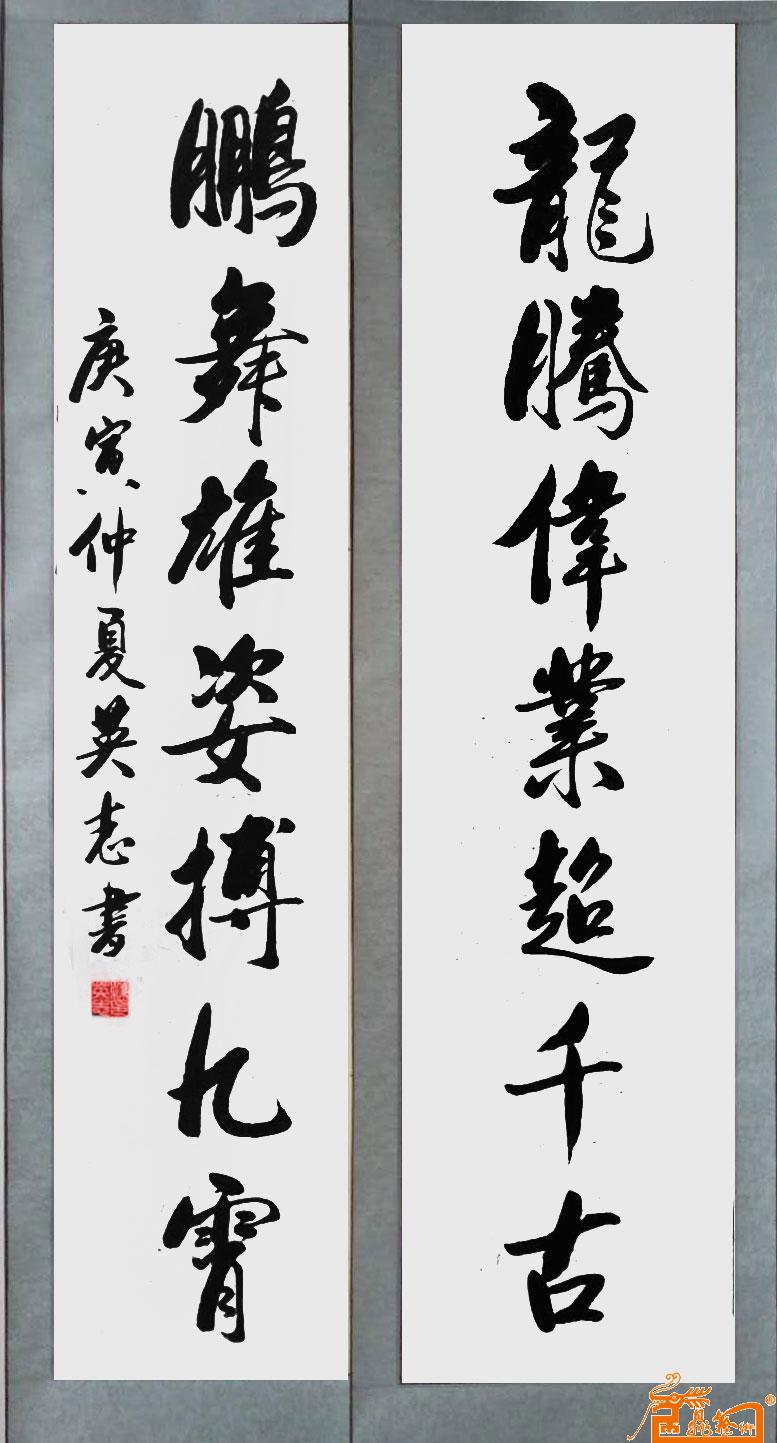 龍騰偉業超千古
鵬舞雄姿搏九霄
庚寅仲夏英志書